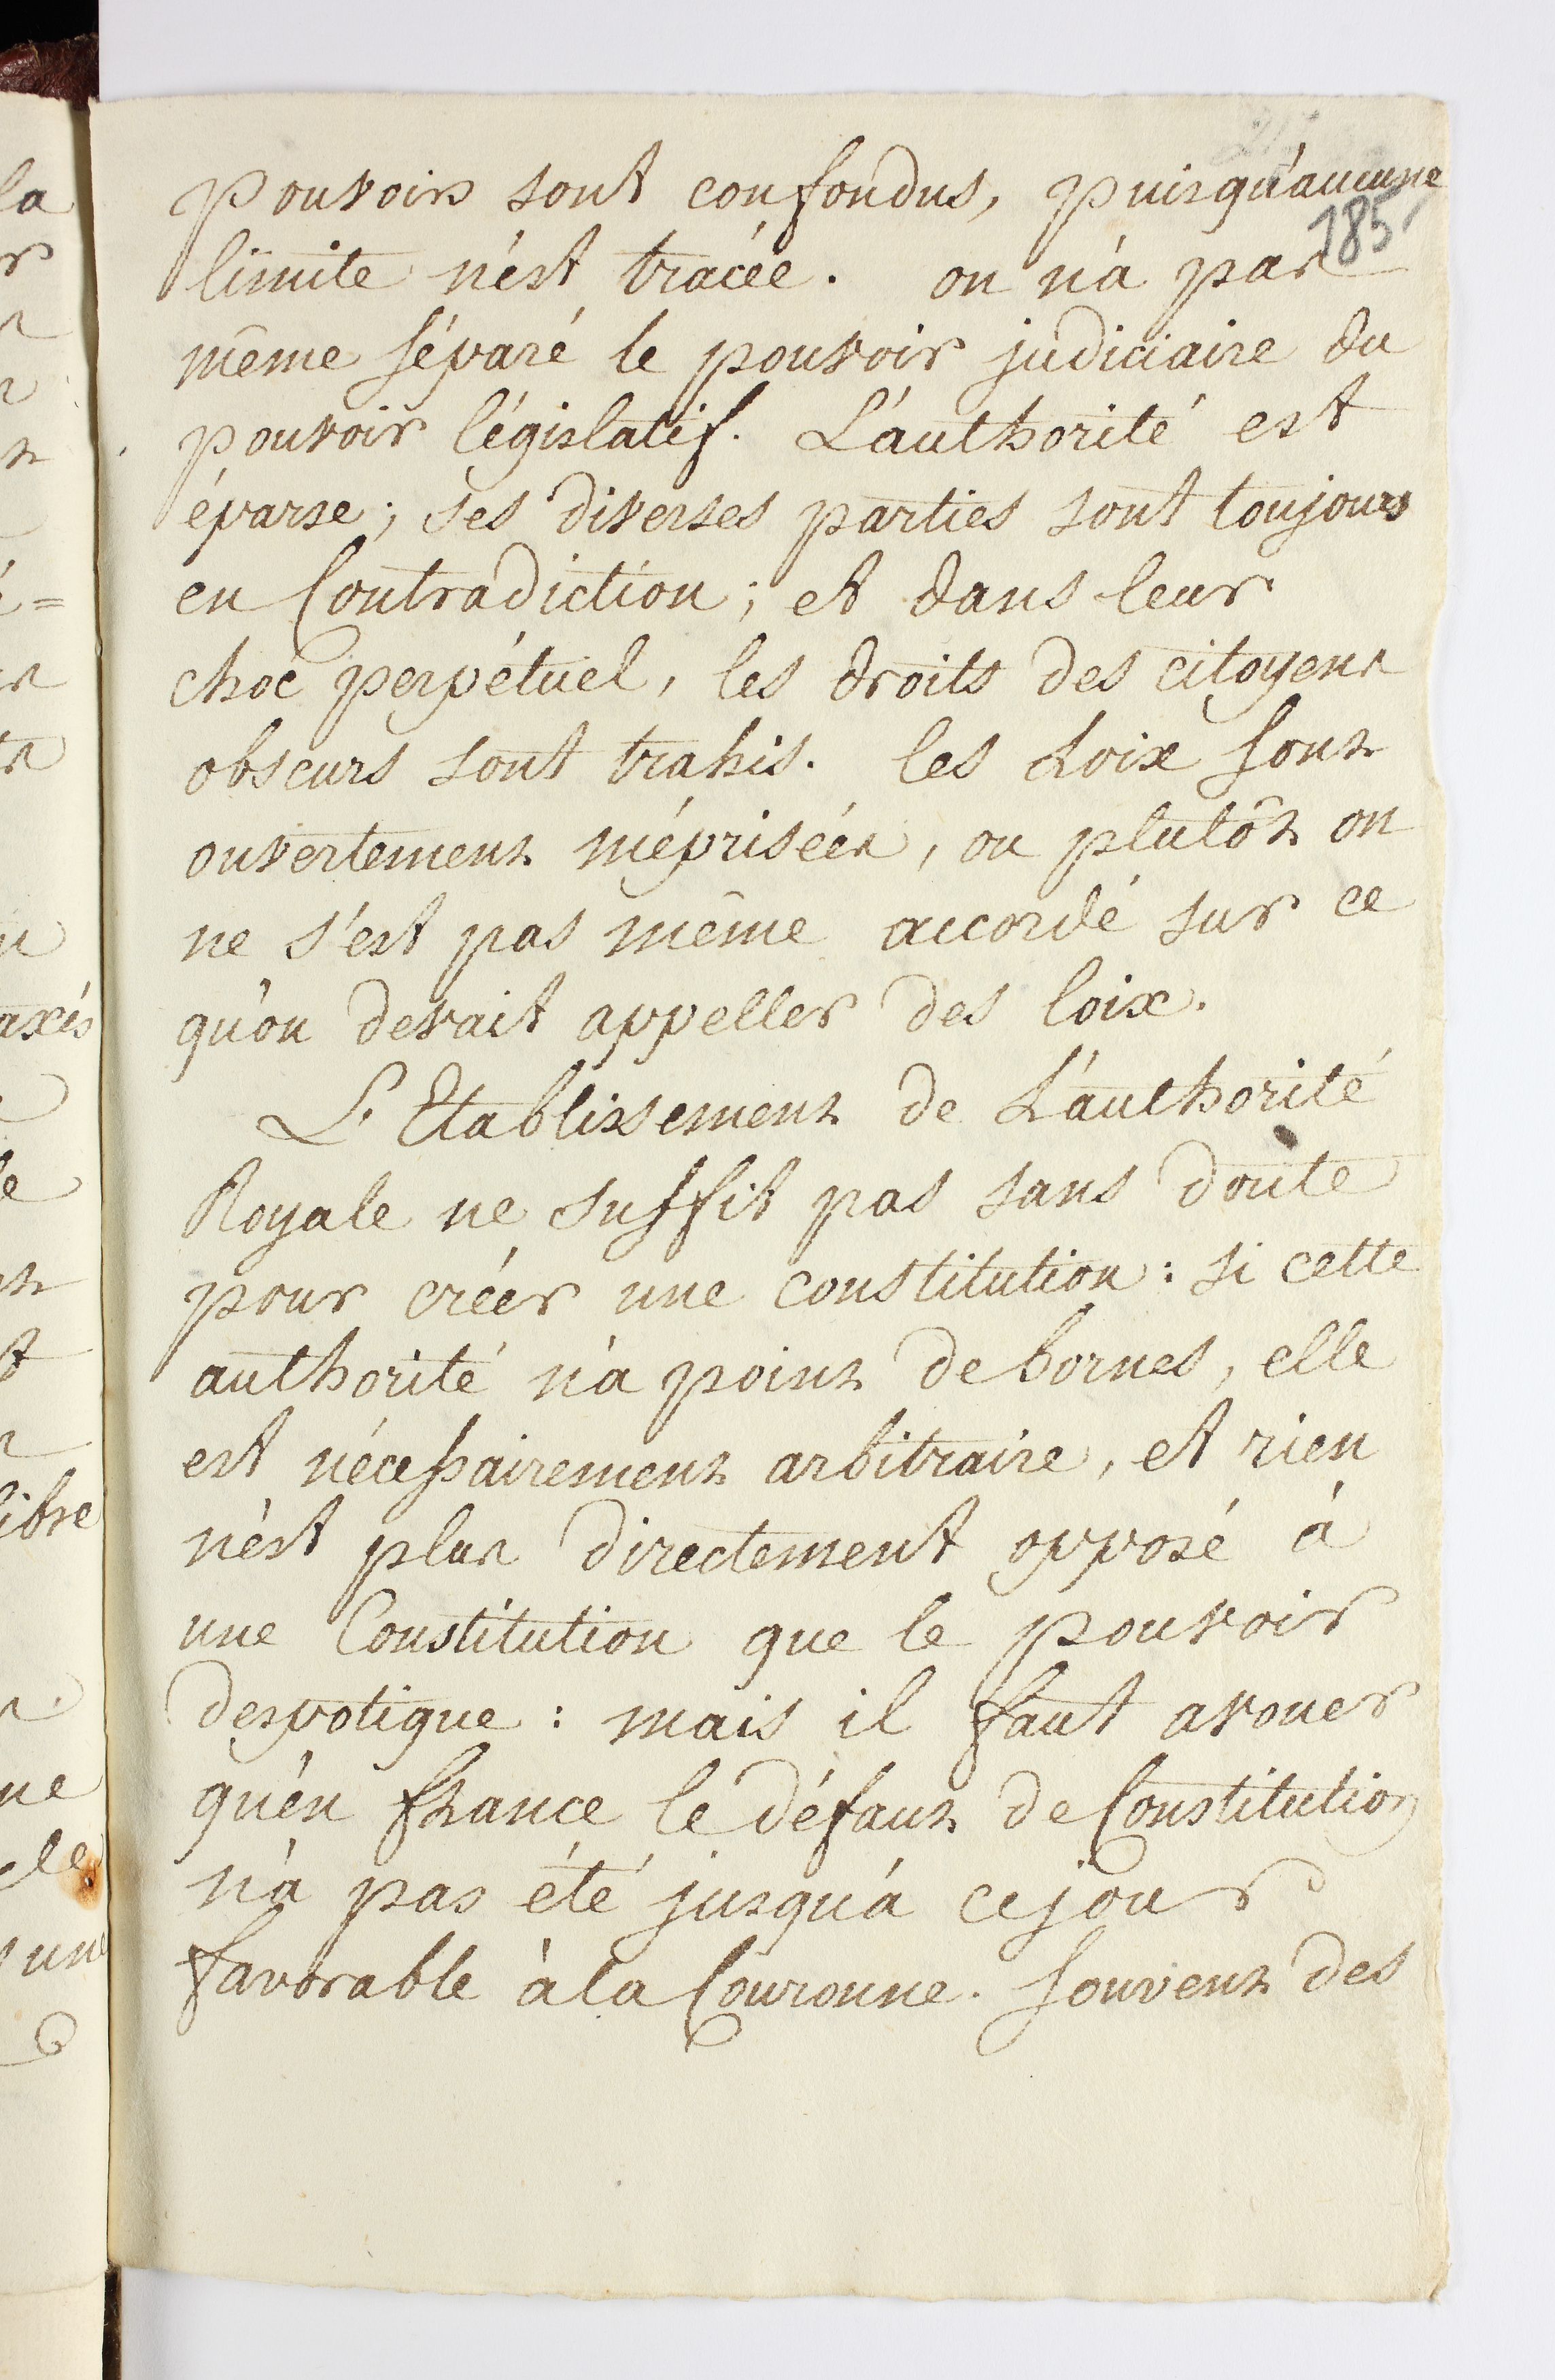 pouvoirs sont confondus, puisqu'aucune
185
limite n'est tracée. on n'a pas
même séparé le pouvoir judiciaire du
pouvoir législatif. L'authorité est
éparse; ses diverses parties sont toujours
en Contradiction; et dans leur
choc perpétuel, les droits des citoyens
obscurs sont trahis. les Loix sont
ouvertement méprisées, ou plutôt on
ne s'est pas même accordé sur ce
qu'on devait appeller des loix.
L'Etablissement de L'authorité
Royale ne suffit pas sans doute
pour créer une constitution: si cette
authorité n'a point de bornes, elle
est nécessairement arbitraire, et rien
n'est plus directement opposé à
une Constitution que le pouvoir
despotique: mais il faut avouer
qu'en france le défaut de Constitution
n'a pas été jusqu'à ce jour
favorable à la Couronne. souvent des